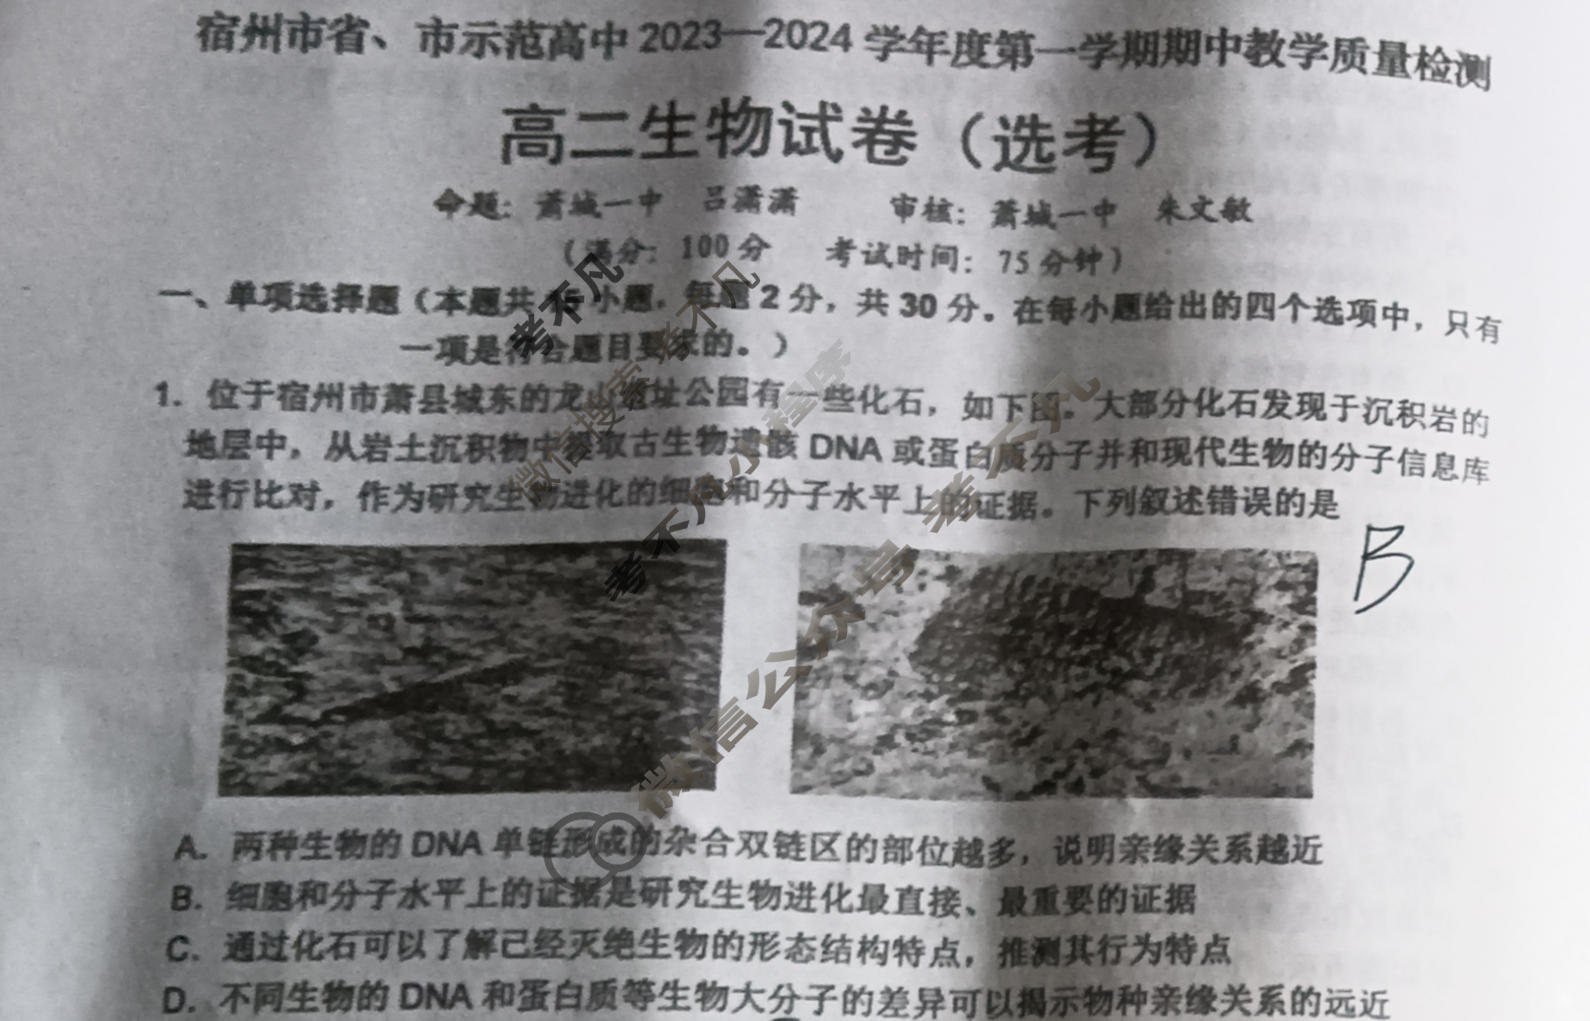 宿州市省、市示范高中2023—2024学年度第一学期期中教学质量检测
高二生物试卷（选考）
命题：萧城一中 吕潇潇 审核：萧城一中 朱文敏
（满分：100分 考试时间：75分钟）
一、单项选择题（本题共 小题，每题2分，共30分。在每小题给出的四个选项中，只有
一项是符合题目要求的。）
1．位于宿州市萧县城东的龙 址公园有一些化石，如下图。大部分化石发现于沉积岩的
地层中，从岩土沉积物中 取古生物遗骸DNA或蛋白质分子并和现代生物的分子信息库
进行比对，作为研究生物进化的细胞和分子水平上的证据。下列叙述错误的是
B
A．两种生物的DNA单链形成的杂合双链区的部位越多，说明亲缘关系越近
B．细胞和分子水平上的证据是研究生物进化最直接、最重要的证据
C．通过化石可以了解已经灭绝生物的形态结构特点，推测其行为特点
D．不同生物的DNA和蛋白质等生物大分子的差异可以揭示物种亲缘关系的远近
考不凡
微信搜索 考不凡
考不凡小程序
微信公众号 考不凡